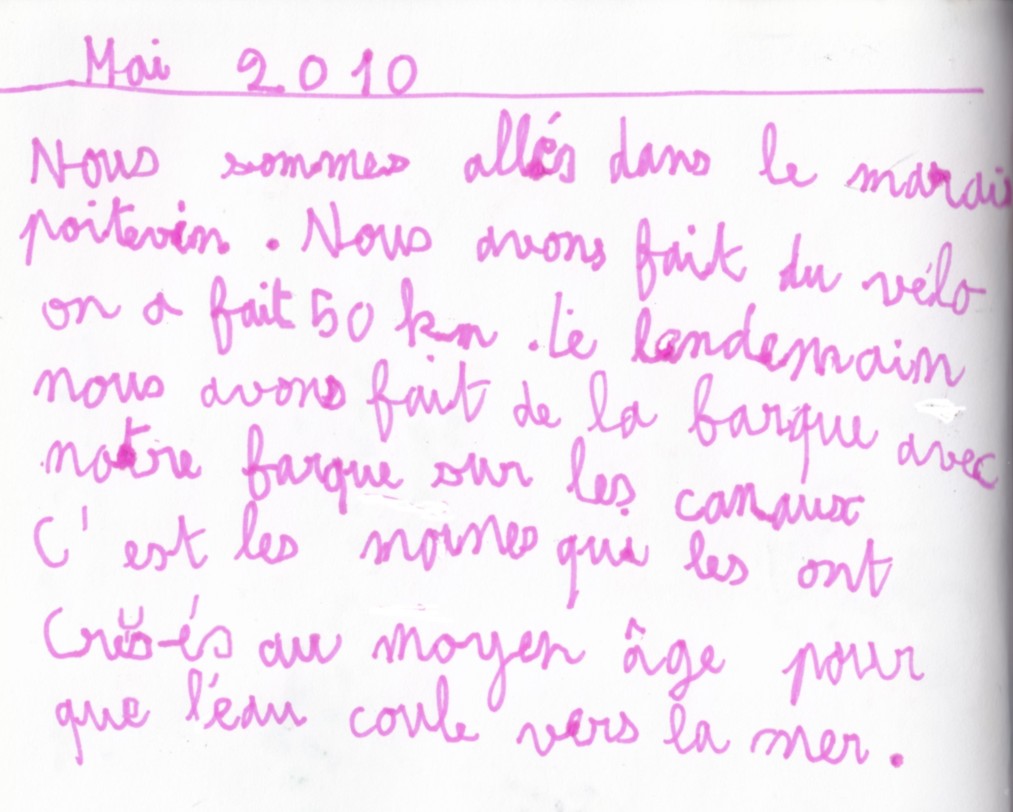 Mai 2010
Nous sommes allés dans le marais
poitevin. Nous avons fait du vélo
on a fait 50 km. Le landemain
nous avons fait de la barque avec
notre barque sur les canaux
C'est les moines qui les ont
creusés au moyen âge pour
que l'éau coule vers la mer.